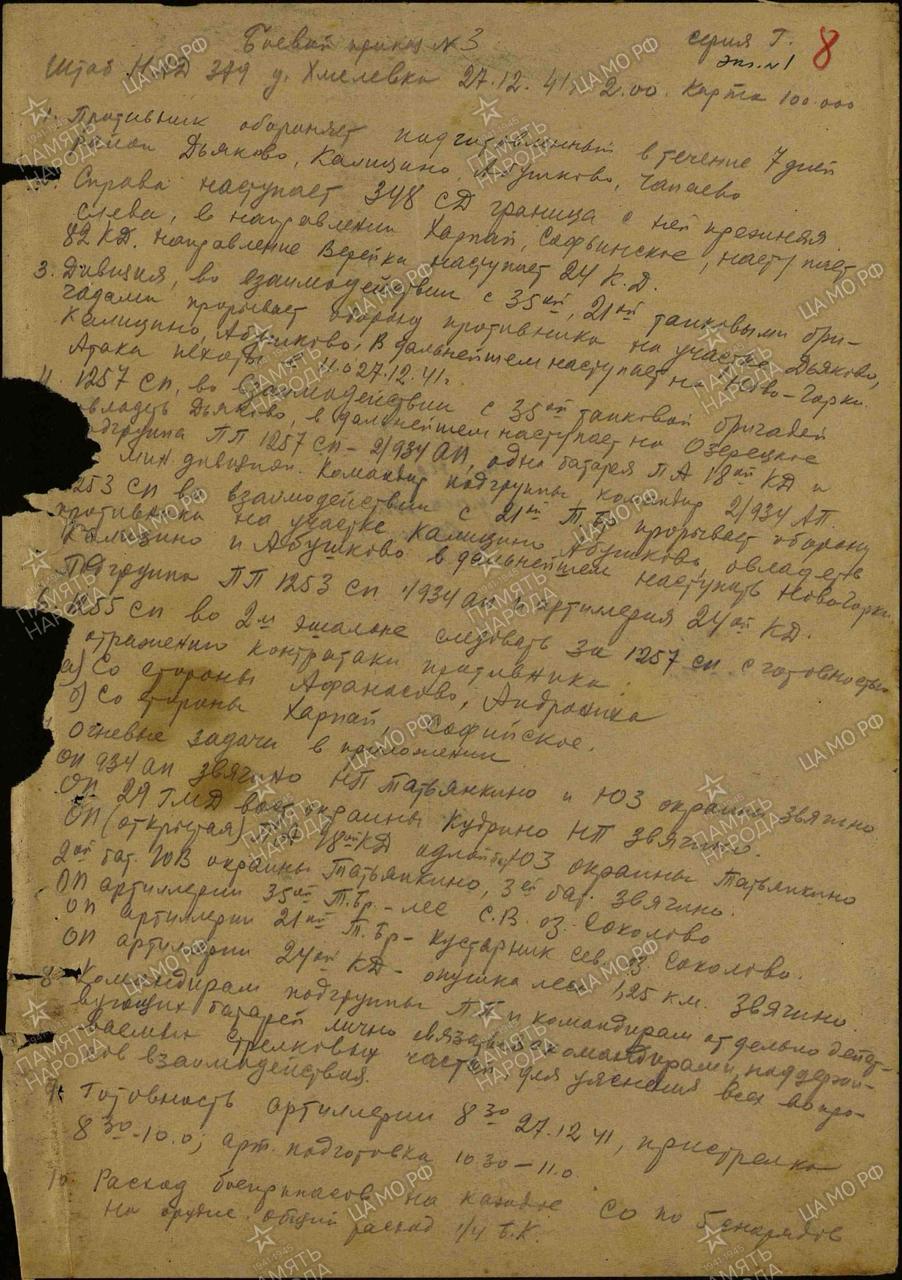 Боевой приказ №3
серия Г.
8
экз. №1
Штаб НАД 379 д. Хмелевка 27.12.41г. 2.00. Карта 100.000
1. Противник обороняет подготовленный в течение 7 дней
район Дьяково, Калицино, Абушково, Чапаево
Справа наступает 348 СД граница с ней прежняя
слева, в направлении Харпай, Софьинское, наступает
82 КД. направление Верейки наступает 24 К.Д.
3. Дивизия, во взаимодействии с 35ой, 21ой танковыми бри-
гадами прорывает оборону противника на участке Дьяково,
Калицино, Абушково, В дальнейшем наступает на Ново-Горки.
Атака пехоты 27.12.41г.
4. 1257 СП, во взаимодействии с 35ой танковой бригадой
овладеть Дьяково, в дальнейшем наступает на Озерецкое
подгруппа ПП 1257 СП – 2/934 АП, одна батарея ПА 18ой КД и
мин. дивизион. Командир подгруппы, командир 2/934 АП.
1253 СП во взаимодействии с 21ой Т.Бр. прорывает оборону
противника на участке Калицино Абушково, овладеть
Калицино и Абушково в дальнейшем наступать НовоГорки
Подгруппа ПП 1253 СП 1/934 АП и артиллерия 24ой КД.
1255 СП во 2м эшалоне следовать за 1257 СП с готовностью
отражении контратаки противника
а) Со стороны Афанасово, Андрейка
б) Со стороны Харпай, Софийское.
Огневые задачи в приложении
ОП 934 АП Звягино НП Татьянкино и ЮЗ окраины Звягино
ОП 29 ГМД вост. окраины Кудрино НП Звягино.
ОП (открытая) 18ой КД одной ЮЗ окраины Татьянкино
2ой бат. ЮВ окраины Татьянкино, 3ей бат. Звягино.
ОП артиллерии 35ой Т.Бр. – лес С.В. оз. Соколово
ОП артиллерии 21ой Т.Бр – кустарник сев. оз. Соколово.
ОП артиллерии 24ой КД – опушка леса 1,25 км. Звягино.
8. Командирам подгруппы ПП и командирам отдельно дейст-
вующих батарей лично связаться с командирами, поддержи-
ваемых стрелковых частей для уяснения всех вопро-
сов взаимодействия.
9. Готовность артиллерии 8 30 27.12.41, пристрелка
8 30 – 10.0, арт. подготовка 10 30 – 11.0
10. Расход боеприпасов на каждое СО по 5 снарядов
на орудие. общий расход 1/4 Б.К.